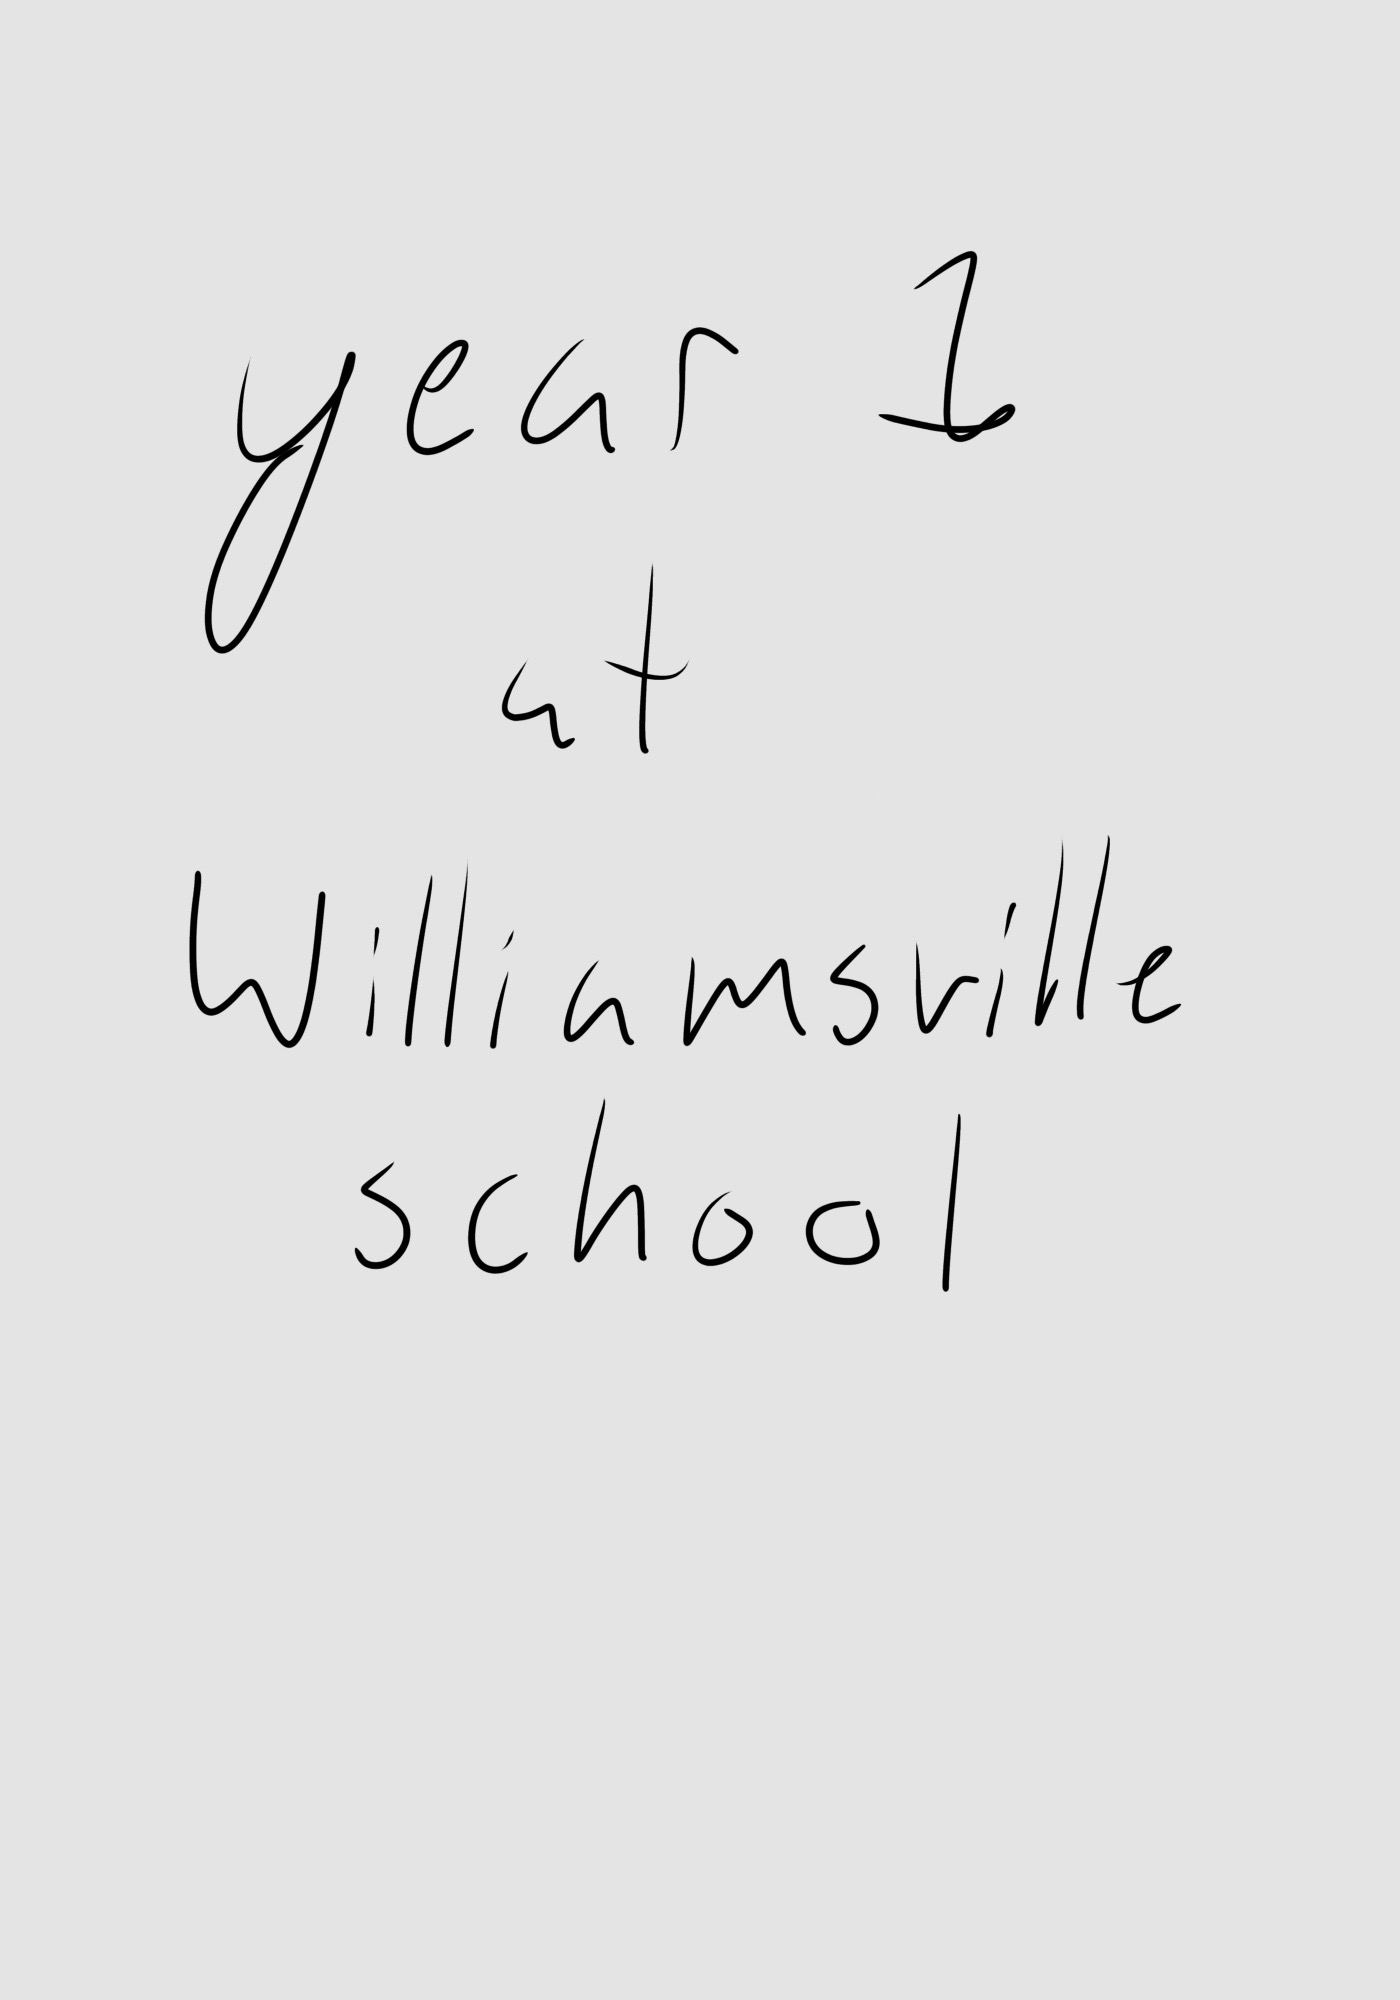 year 1
at
Williamsville
school